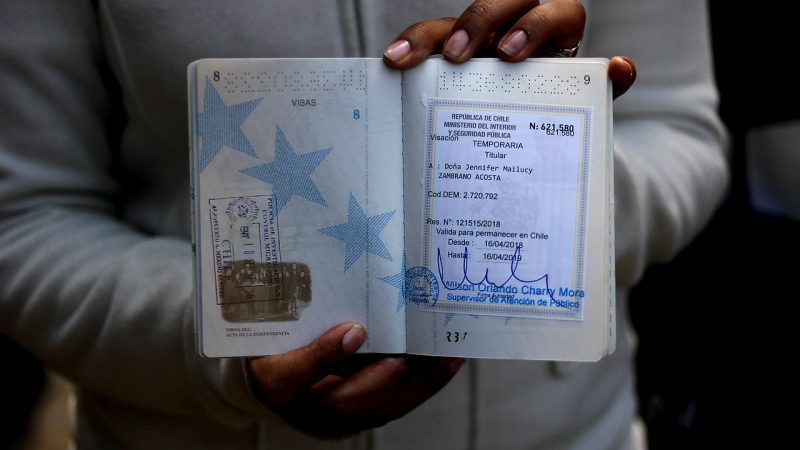 8
VISAS
8
POLICIA DE INVESTIGACIONES
CONTROL MIGRATORIO
CHILE
AEROPUERTO A. MERINO BENITEZ
FIRMA DEL
ACTA DE LA INDEPENDENCIA
9
REPÚBLICA DE CHILE
MINISTERIO DEL INTERIOR
Y SEGURIDAD PÚBLICA
N: 621.580
621.580
Visación
TEMPORARIA
Titular
A : Doña Jennifer Mailucy
ZAMBRANO ACOSTA
Cod.DEM: 2.720.792
Res. N°: 121515/2018
Valida para permanecer en Chile
Desde : 16/04/2018
Hasta : 16/04/2019
Wilson Orlando Charry Mora
Supervisor de Atención de Público